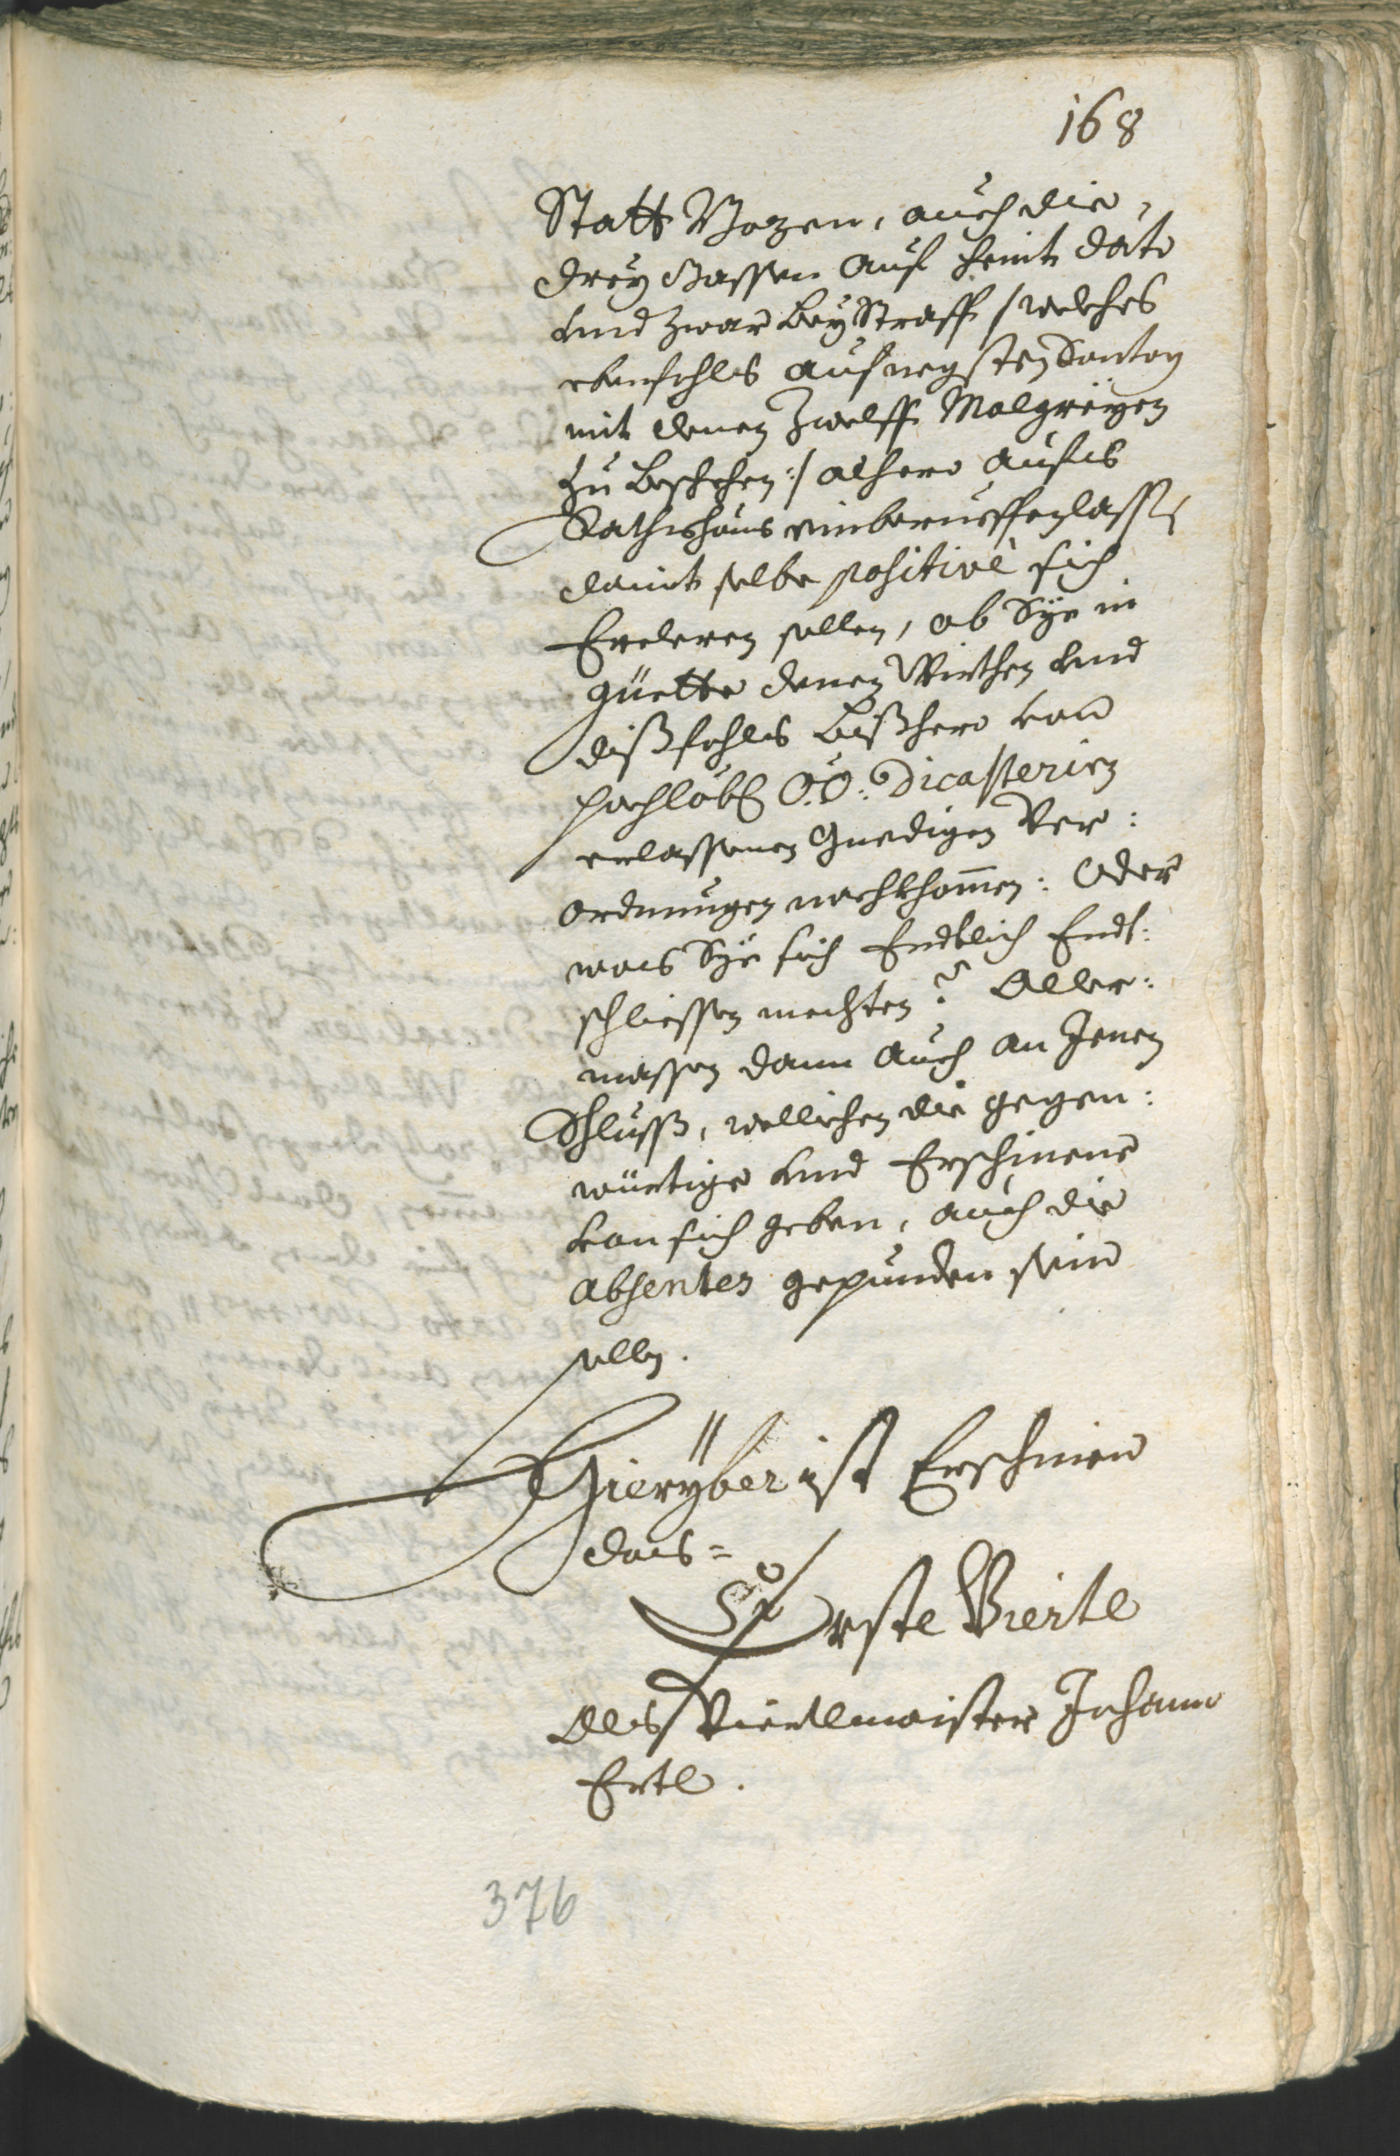 168
Statt Bozen, auch die,
drey Gassen auf heint dato
vnd zwar bey Straff /welches
ebenfahls auf negsten Sontag
mit denen Zwelff Malgreyen
zu beschehen:/ alhero aufs
Rathshaus einberueffen lassen
damit selbe positivè sich
Ercleren sollen, ob Sÿe in
güette denen Wirthen vnd
dißfahls bißhero von
hochlöbl O: Ö: Dicasterien
erlassenen Gnedigen Ver:
ordnungen nachkhomen: Oder
was Sÿe sich Endtlich Ent:
schliessen mechten? Aller:
massen dann auch an Jenen
Schluss, wellichen die gegen:
würtige vnd Erschinene
von sich geben, auch die
absentes gepunden sein
sollen.
Hierÿber ist Erschinen
das=
Erste Viertl
Als Viertlmaister Johann
Ertl.
376